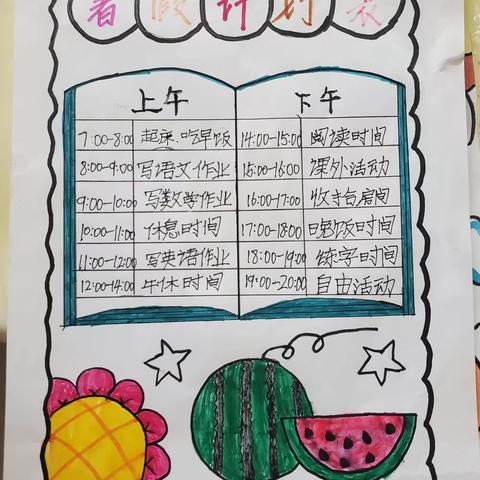 暑假计划表
上午
7:00-8:00 起床、吃早饭
8:00-9:00 写语文作业
9:00-10:00 写数学作业
10:00-11:00 休息时间
11:00-12:00 写英语作业
12:00-14:00 午休时间
下午
14:00-15:00 阅读时间
15:00-16:00 课外活动
16:00-17:00 收拾房间
17:00-18:00 晚饭时间
18:00-19:00 练字时间
19:00-20:00 自由活动